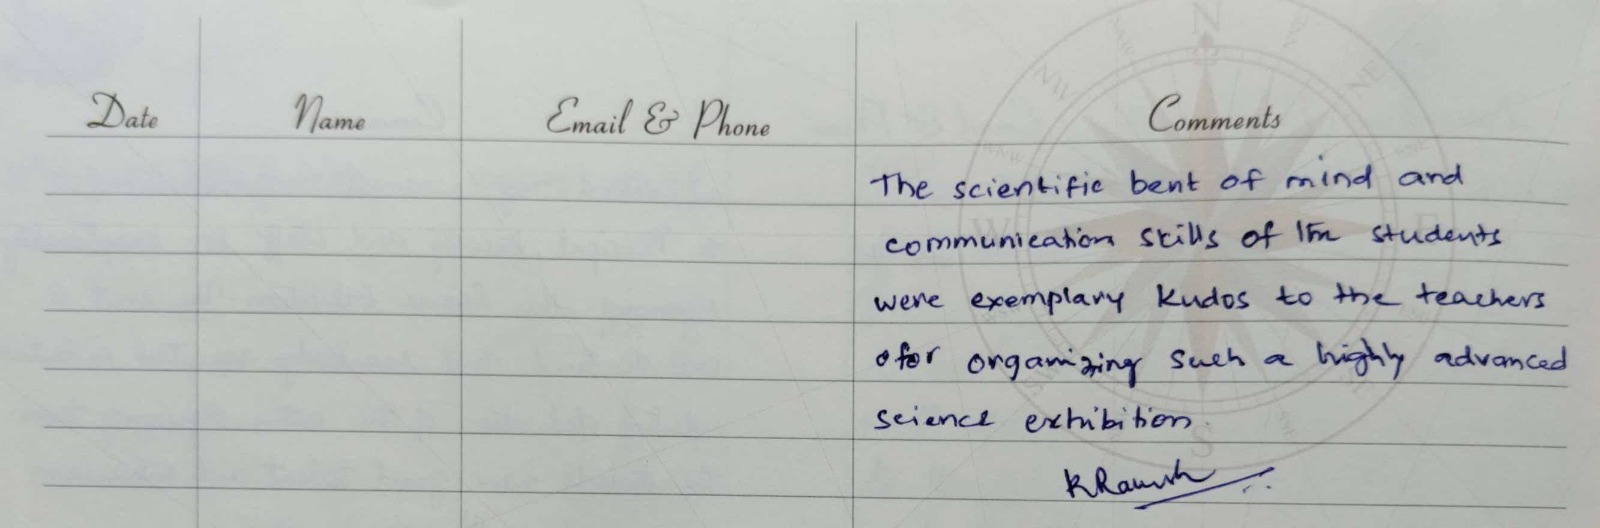 Date Name Email & Phone Comments
The scientific bent of mind and
communication skills of students
were exemplary Kudos to the teachers
for organizing such a highly advanced
science exhibition.